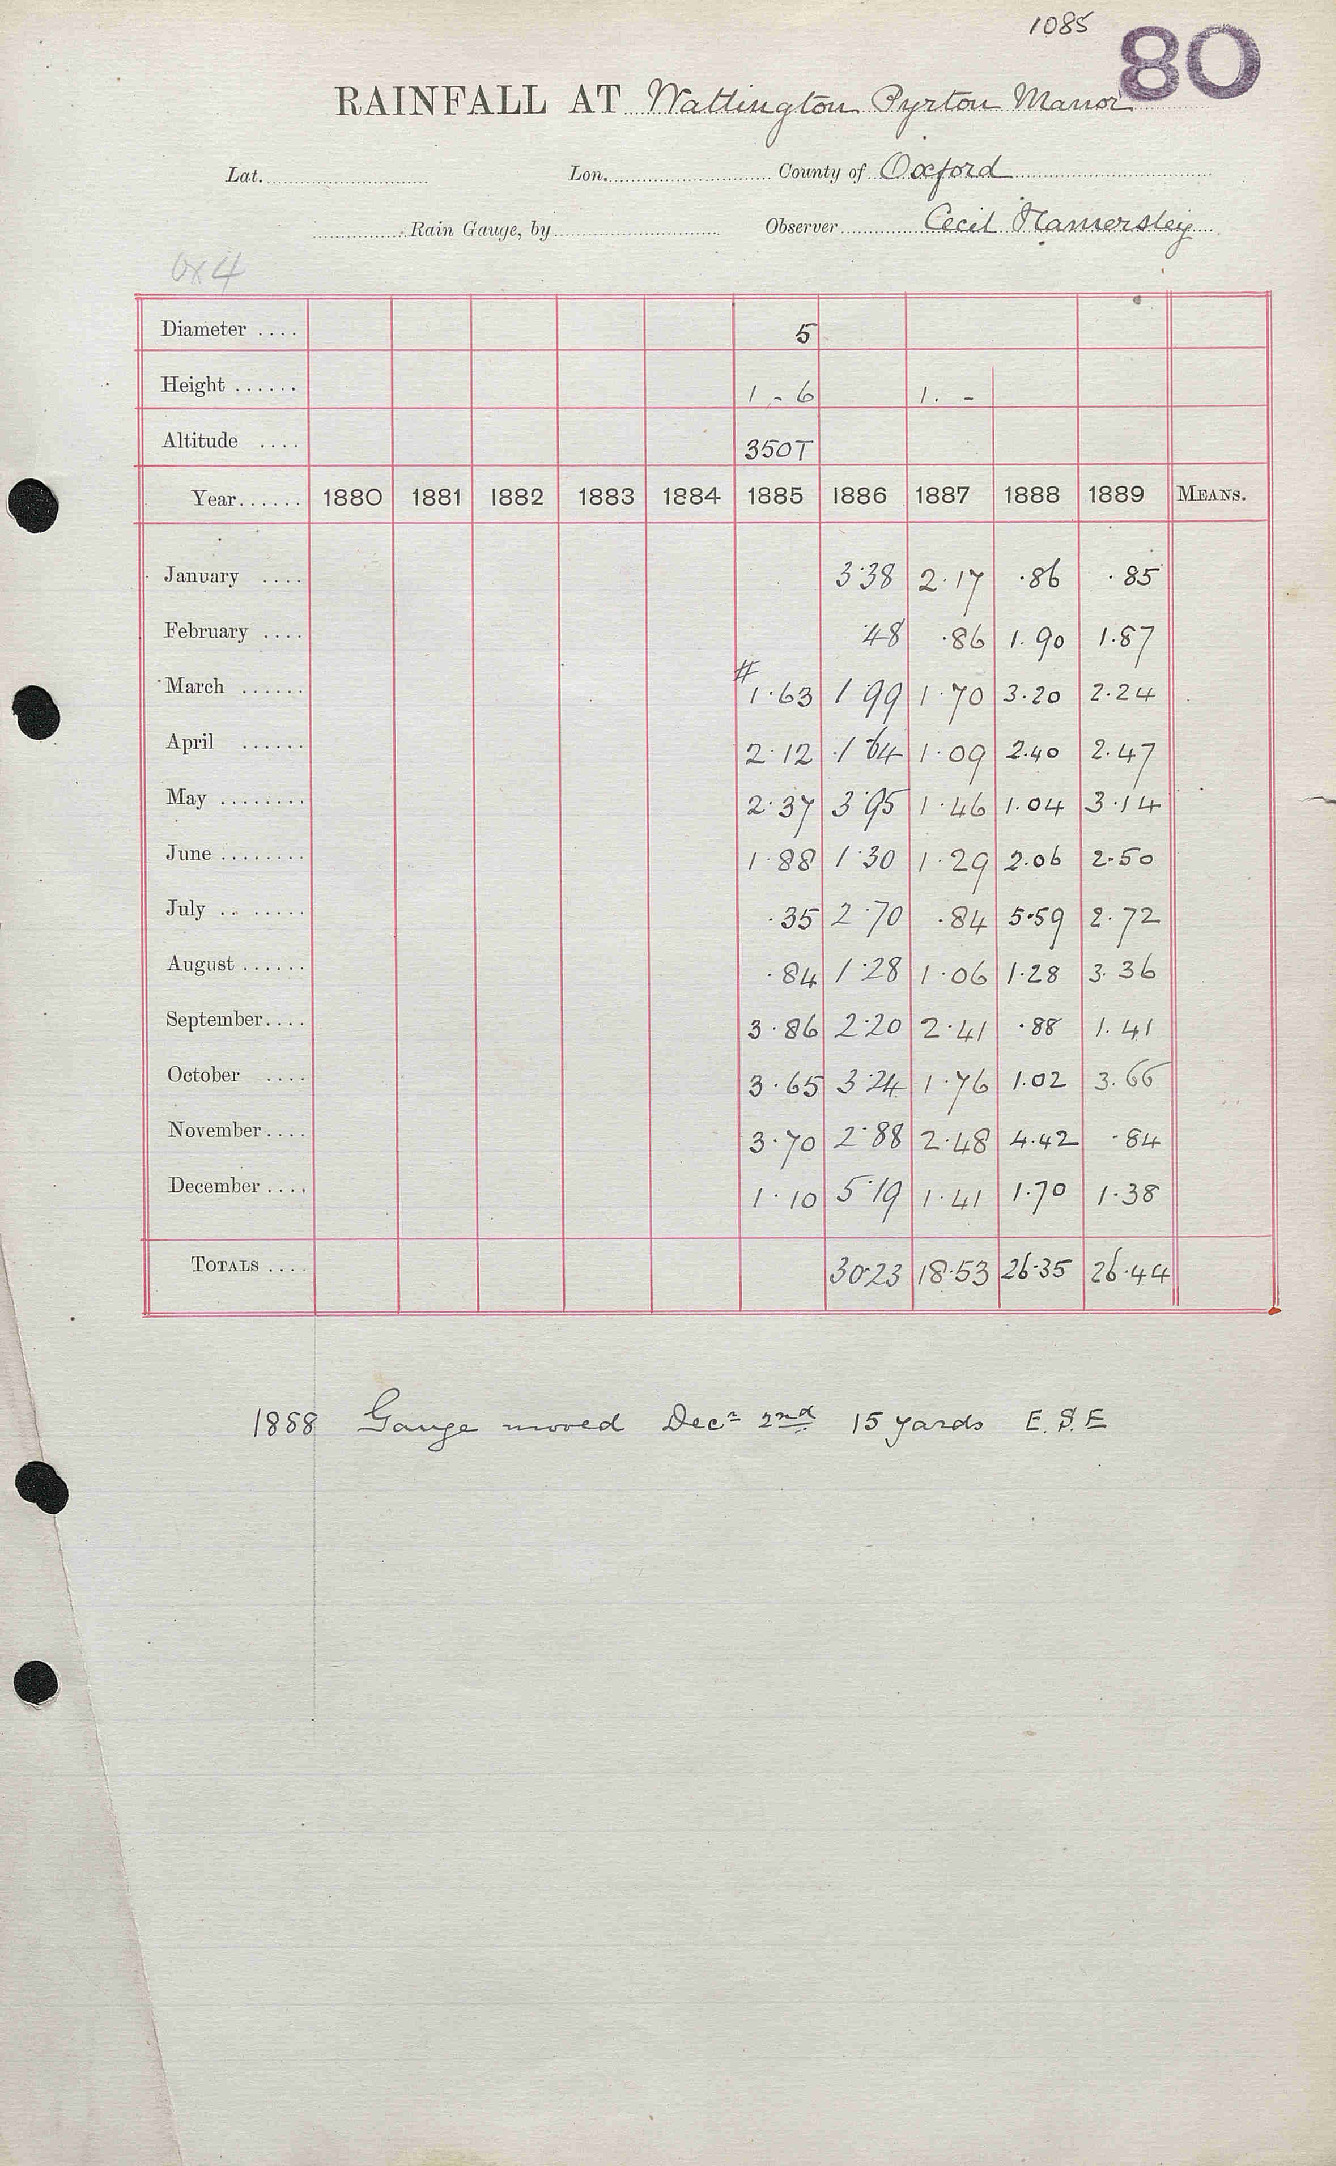 1085 80
RAINFALL AT Watlington Pyrton Manor
Lat. Lon. County of Oxford
Rain Gauge, by Observer Cecil Hamersley
Ox 4
Diameter .... 5
Height ...... 1 - 6 1. -
Altitude .... 350T
Year...... 1880 1881 1882 1883 1884 1885 1886 1887 1888 1889 MEANS.
January .... 3·38 2·17 ·86 ·85
February .... ·48 ·86 1.90 1·87
March ...... # 1·63 1 99 1·70 3·20 2·24
April ...... 2·12 1 64 1·09 2·40 2·47
May ........ 2·37 3·95 1·46 1·04 3·14
June ........ 1·88 1·30 1·29 2·06 2·50
July .. ..... ·35 2·70 ·84 5·59 2·72
August ...... ·84 1·28 1·06 1·28 3·36
September.... 3·86 2·20 2·41 ·88 1.41
October .... 3·65 3·24 1·76 1·02 3.66
November.... 3·70 2·88 2·48 4·42 ·84
December .... 1·10 5·19 1·41 1·70 1·38
TOTALS .... 30·23 18·53 26·35 26·44
1888 Gauge moved Decr 2nd 15 yards E.S.E